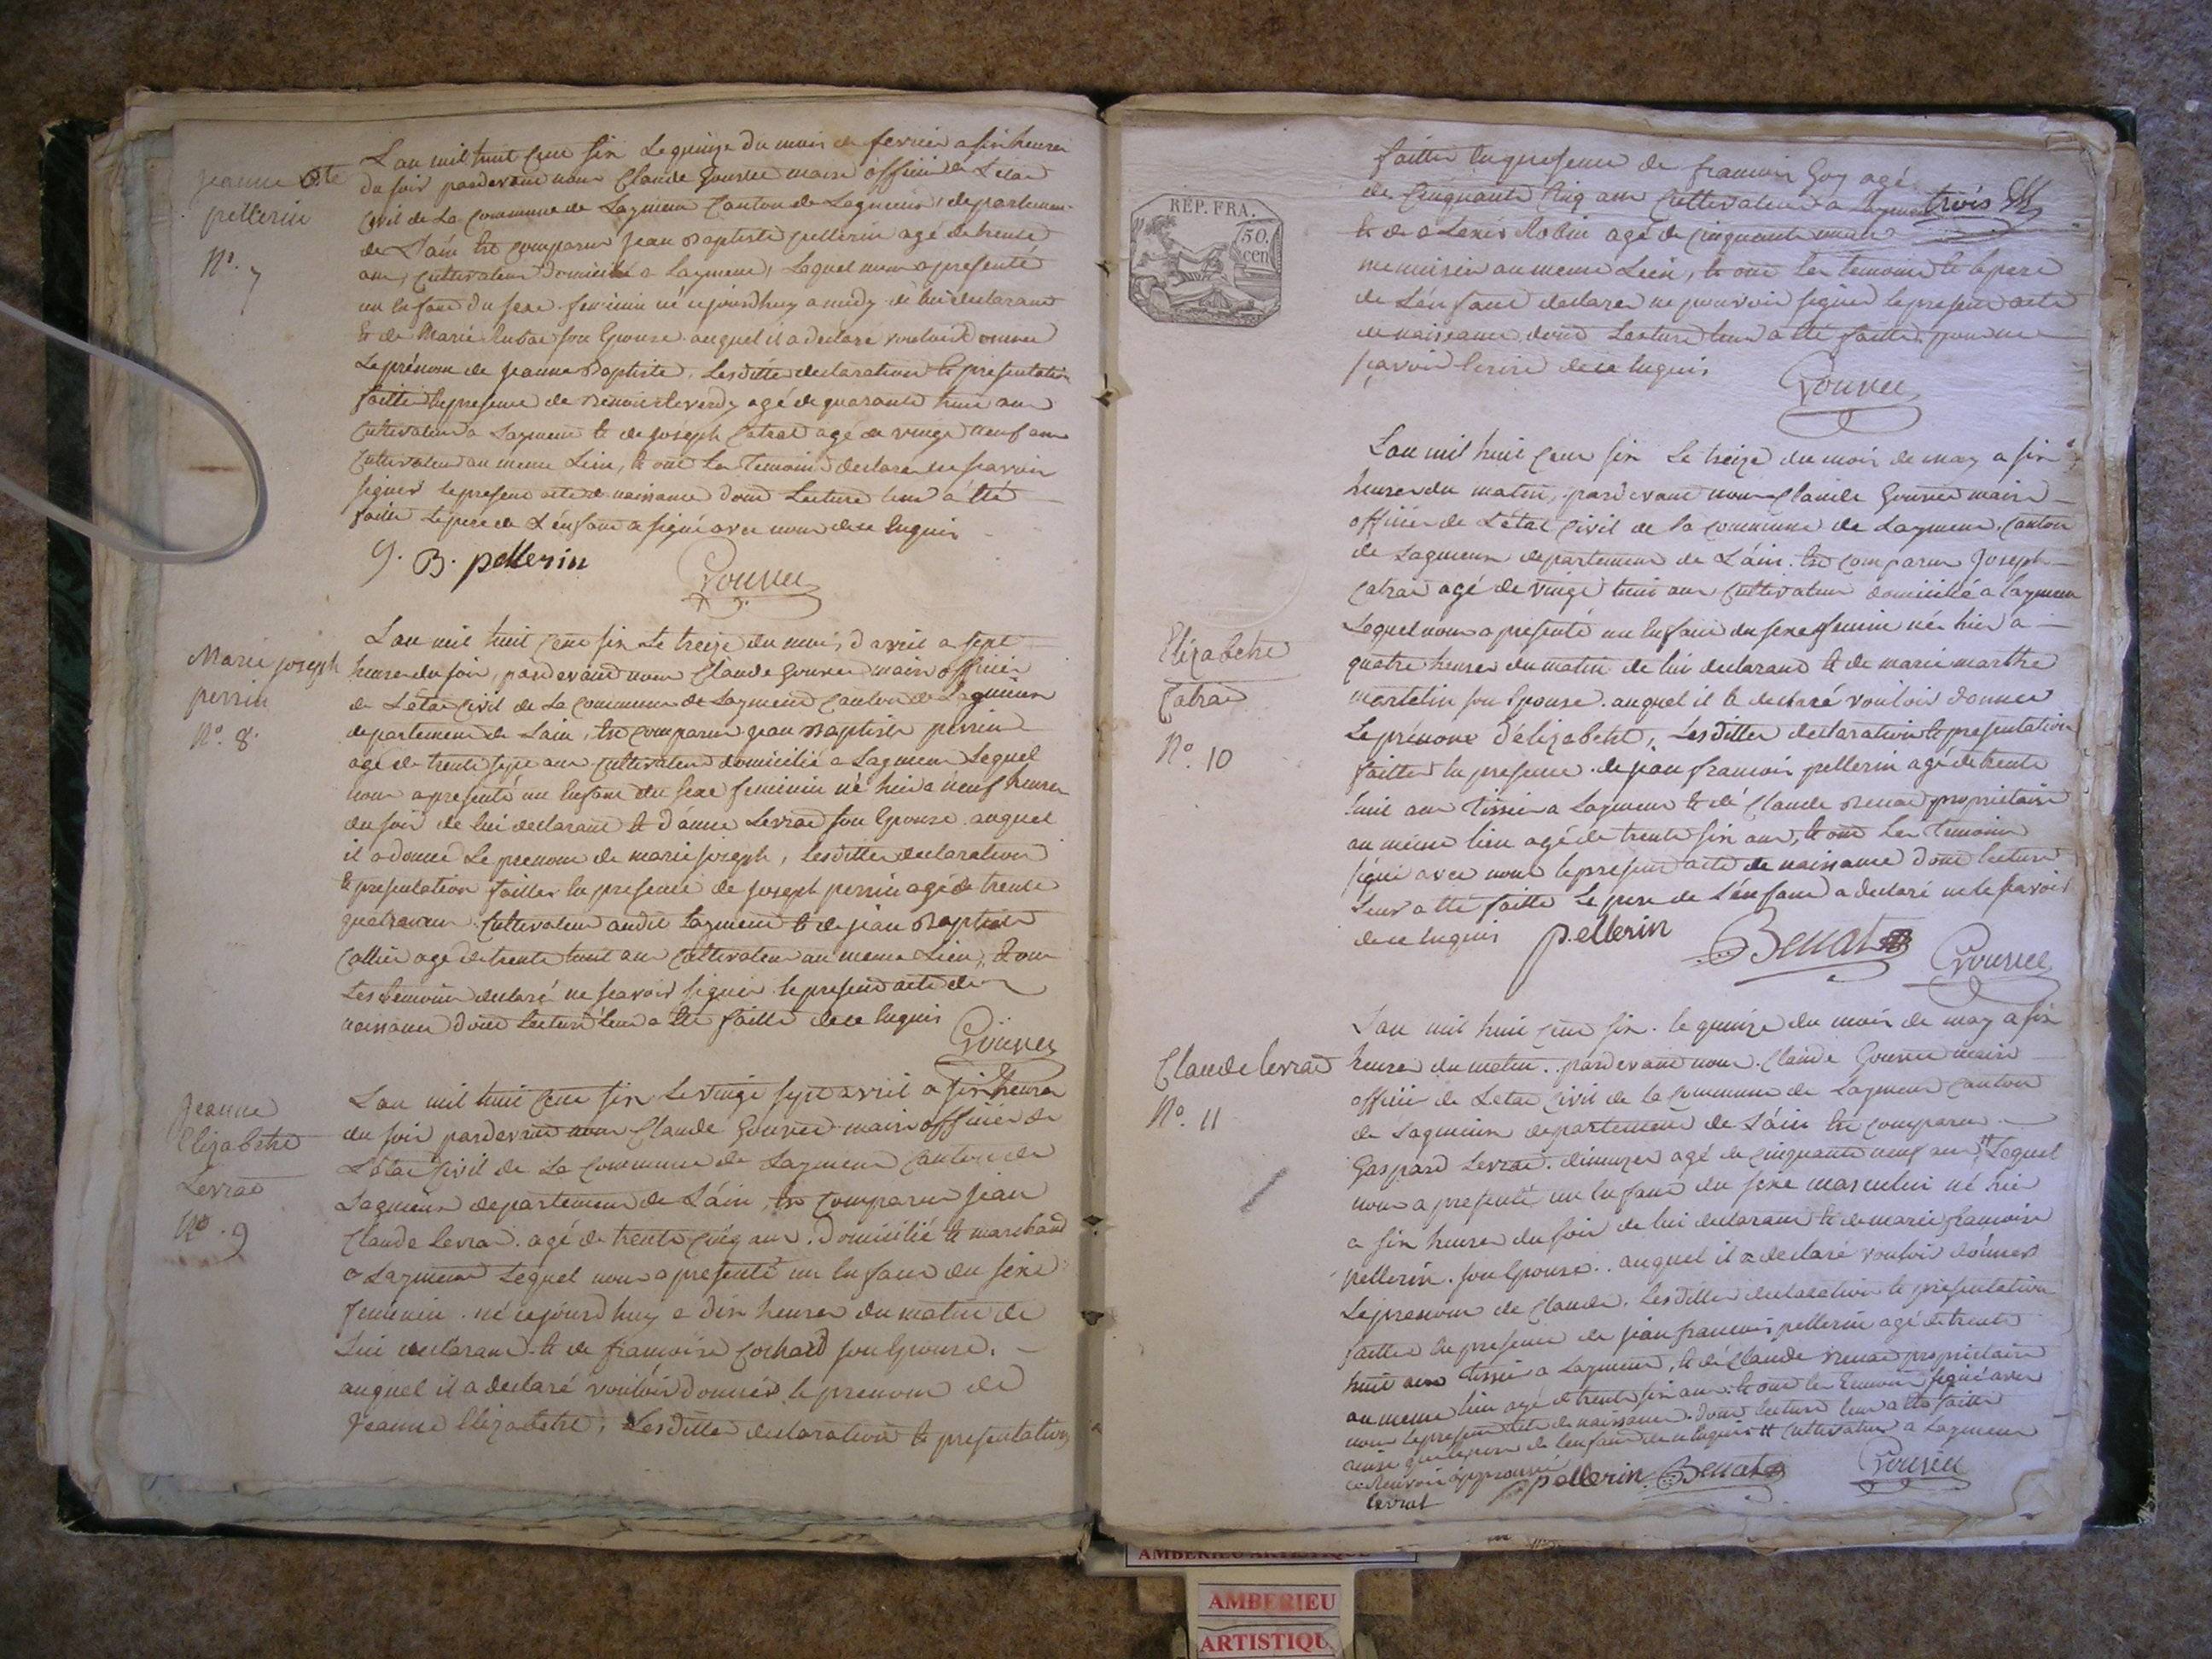 Jeanne Bte
pellerin
No. 7
L'an mil huit cent six le quinze du mois de fevrier a six heures
du soir pardevant nous Claude Gouvier maire officier de L'état
Civil de La Commune de Lagnieu Canton de Lagnieu, departement
de L'áin est comparu Jean Baptiste pellerin agé de trente
ans, cultivateur domicilié a Laymeur, Lequel nous a presenté
un Enfant du sexe feminin né cejourdhuy a midy de lui declarant
et de Marie son Epouse auquel il a declaré vouloir donner
Le prénom de Jeanne Baptiste, Lesdittes declaration et presentation
faittes En presence de agé de quarante huit ans
Cultivateur a Laymeur et de Joseph Catrat agé de vingt neuf ans
Cultivateur au meme Lieu, et ont les Temoins declaré ne scavoir
signer le present acte de naissance dont Lecture leur á Eté
faitte Le pere de L'énfant a signé avec nous de ce Enquis
J. B. pellerin
Marie joseph
perrin
No. 8.
L'an mil huit cent six Le treize du mois d'avril a sept
heures du soir, pardevant nous Claude maire officier
de L'état civil de La Commune de Laymeur Canton de Lagnieu
departement de Lain, est comparu jean Baptiste perrin
agé de trente sept ans cultivateur domicilié a Laymeur Lequel
nous a presenté un Enfant du sexe feminin né hier a neuf heures
du soir de lui declarant et d'anne Levrat son Epouse auquel
il a donné Le prenom de marie joseph, Lesdittes declaration
et presentation faittes En presence de joseph perrin agé de trente
quatre ans Cultivateur audit Laymeur et de jean Baptiste
agé de trente huit ans Cultivateur au meme Lieu, et ont
Les temoins declaré ne scavoir signer le present acte de
naissance dont lecture leur a Eté faitte de ce Enquis
Jeanne
Elizabethe
Levrat
No. 9
L'an mil huit cent six Le vingt sept avril a six heures
du soir pardevant nous Claude maire officier de
L'état Civil de La Commune de Laymeur Canton de
Lagnieu departement de L'áin, est comparu jean
Claude Levrat agé de trente cinq ans. Domicilié et marchand
a Laymeur Lequel nous a presenté un Enfant du sexe
feminin né cejourd'huy a dix heures du matin de
Lui declarant et de francoise Cochard son Epouse.
auquel il a declaré vouloir donner le prenom de
Jeanne Elizabethe, Lesdittes declaration et presentation
RÉP. FRA.
50.
cen
faittes En presence de francois Goy agé
de Cinquante Cinq ans Cultivateur a Laymeur trois
et de alexis Robin agé de cinquante
menuisier au meme Lieu, et ont les temoins et le pere
de L'énfant declaré ne pouvoir signer le present acte
de naissance dont Lecture leur a Eté faitte pour ne
scavoir Ecrire de ce Enquis
Elizabethe
Catrat
No. 10
L'an mil huit cent six Le treize du mois de may a six
heures du matin, pardevant nous Claude maire
officier de L'état Civil de la commune de Laymeur Canton
de Lagnieu departement de L'áin. est comparu Joseph
Catrat agé de vingt huit ans Cultivateur domicilié a Laymeur
Lequel nous a presenté un Enfant du sexe feminin né hier a
quatre heures du matin de lui declarant et de marie marthe
martelin son Epouse. auquel il a declaré vouloir donner
Le prénom d'élizabethe, Lesdittes declaration et presentation
faittes En presence de jean francois pellerin agé de trente
huit ans Tissier a Laymeur et de Claude Benat proprietaire
au meme lieu agé de trente six ans, et ont les Temoins
signé avec nous le present acte de naissance dont lecture
Leur a Eté faitte Le pere de L'énfant a declaré ne le scavoir
de ce Enquis pellerin Benat
Claude levrat
No. 11
L'an mil huit cent six. le quinze du mois de may a six
heures du matin. pardevant nous Claude maire
officier de L'état Civil de la Commune de Laymeur Canton
de Lagnieu departement de L'áin est comparu
Gaspard Levrat. agé de cinquante neuf ans Lequel
nous a presenté un Enfant du sexe masculin né hier
a six heures du soir de lui declarant et de marie francoise
pellerin. son Epouse. auquel il a declaré vouloir donner
Le prenom de Claude. Lesdittes declaration et presentation
faittes En presence de jean francois pellerin agé de trente
huit ans Tissier a Laymeur, et de Claude Benat proprietaire
au meme lieu agé de trente six ans. et ont les temoins signé avec
nous le present acte de naissance. dont lecture leur a Eté faitte
ainsi que le pere de l'enfant de ce Enquis # Cultivateur a Laymeur
ce Renvoi approuvé
levrat pellerin Benat
AMBERIEU ARTISTIQUE
AMBERIEU
ARTISTIQU